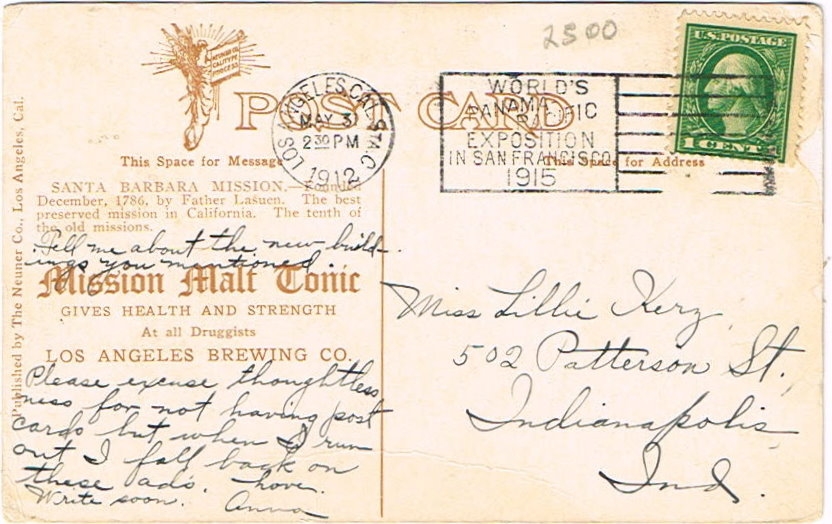 2500
NEUNER CO.
CALITYPE
PROCESS
U.S. POSTAGE
1 CENT 1
POST CARD
LOS ANGELES, CAL. STA. C
MAY 31
2 30 PM
1912
WORLD'S
PANAMA
PACIFIC
EXPOSITION
IN SAN FRANCISCO
1915
This Space for Message
This Space for Address
SANTA BARBARA MISSION.—Founded
December, 1786, by Father Lasuen. The best
preserved mission in California. The tenth of
the old missions.
Tell me about the new build-
ings you mentioned.
Mission Malt Tonic
GIVES HEALTH AND STRENGTH
At all Druggists
LOS ANGELES BREWING CO.
Please excuse thoughtless
ness for not having post
cards but when I run
out I fall back on
these ads. Love.
Write soon. Anna
Published by The Neuner Co., Los Angeles, Cal.
Miss Lillie Kerz
502 Patterson St.
Indianapolis
Ind.